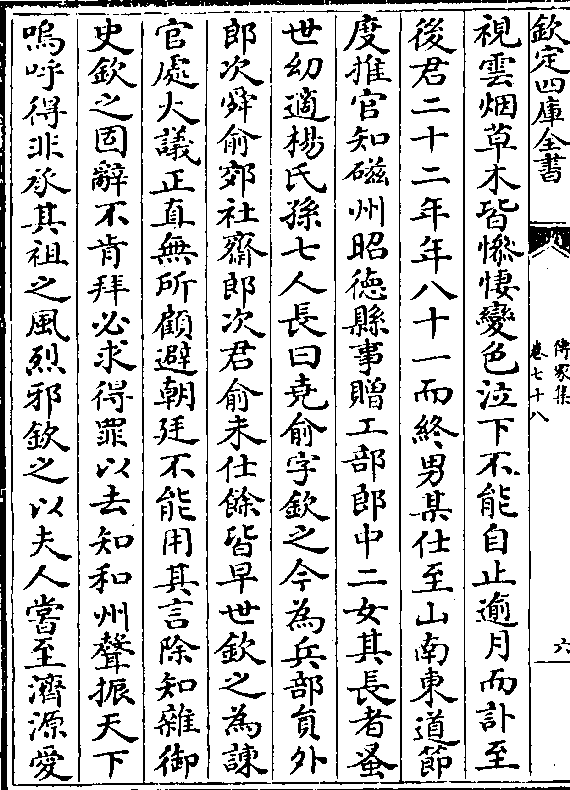 欽定四庫全書
傳家集
卷七十八
六
視雲烟草木皆慘悽變色泣下不能自止逾月而訃至
後君二十二年年八十一而終男某仕至山南東道節
度推官知磁州昭德縣事贈工部郎中二女其長者蚤
世幼適楊氏孫七人長曰堯俞字欽之今為兵部員外
郎次舜俞郊社齋郎次君俞未仕餘皆早世欽之為諫
官處大議正直無所顧避朝廷不能用其言除知雜御
史欽之固辭不肯拜必求得罪以去知和州聲振天下
嗚呼得非承其祖之風烈邪欽之以夫人嘗至濟源愛